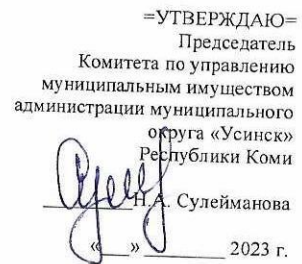 =УТВЕРЖДАЮ=
Председатель
Комитета по управлению
муниципальным имуществом
администрации муниципального
округа «Усинск»
Республики Коми
Н.А. Сулейманова
«___» ________ 2023 г.